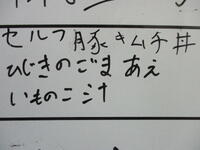 セルフ豚キムチ丼
ひじきのごまあえ
いものこ汁